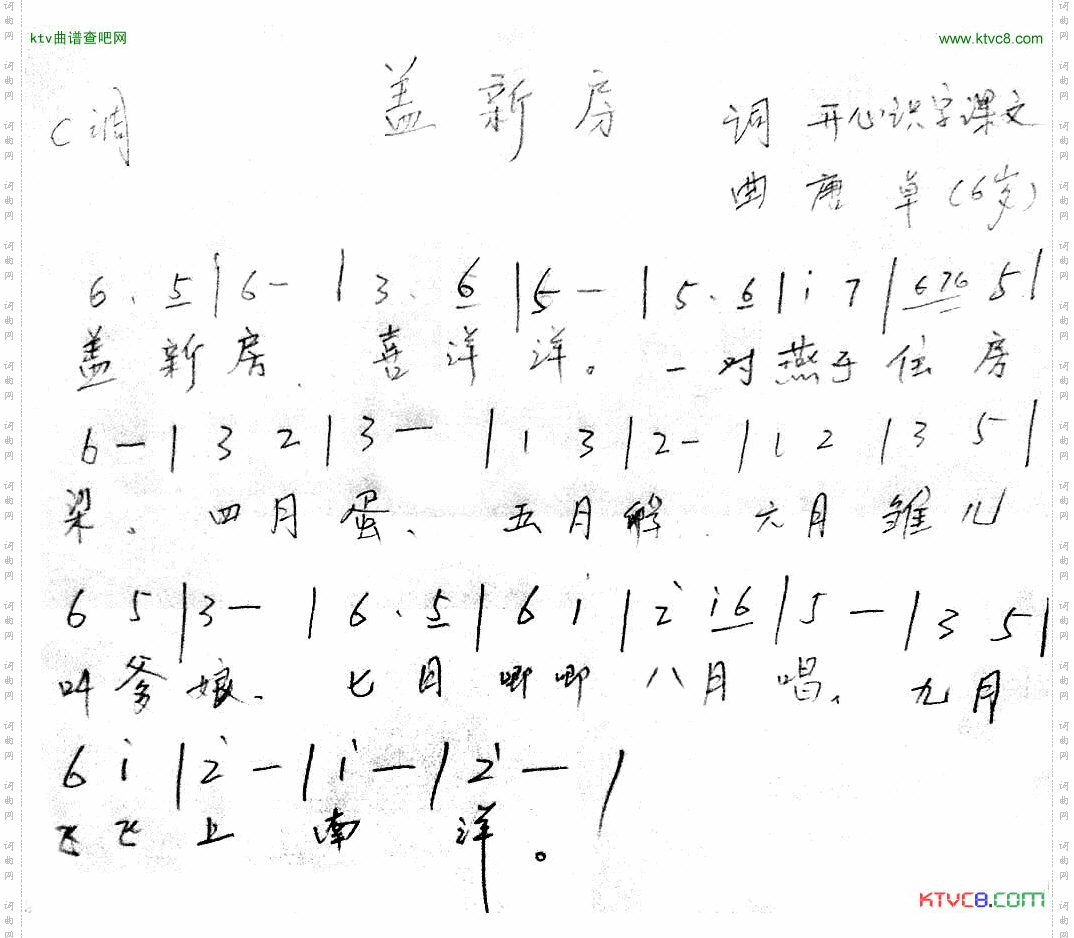 ktv曲谱查吧网 www.ktvc8.com
盖新房
C调 词 开心识字课文
曲 唐卓(6岁)
6. 5|6-|3. 6|5-|5. 6|i 7|676 5|
盖新房 喜洋洋。一对燕子住房
6-|3 2|3-|1 3|2-|1 2|3 5|
梁。四月蛋、五月解 六月雏儿
6 5|3-|6. 5|6 i|2̇ i6|5-|3 5|
叫爹娘、七月唧唧八月唱、九月
6 i|2̇-|i-|2̇-|
飞飞上南洋。
KTVC8.COM